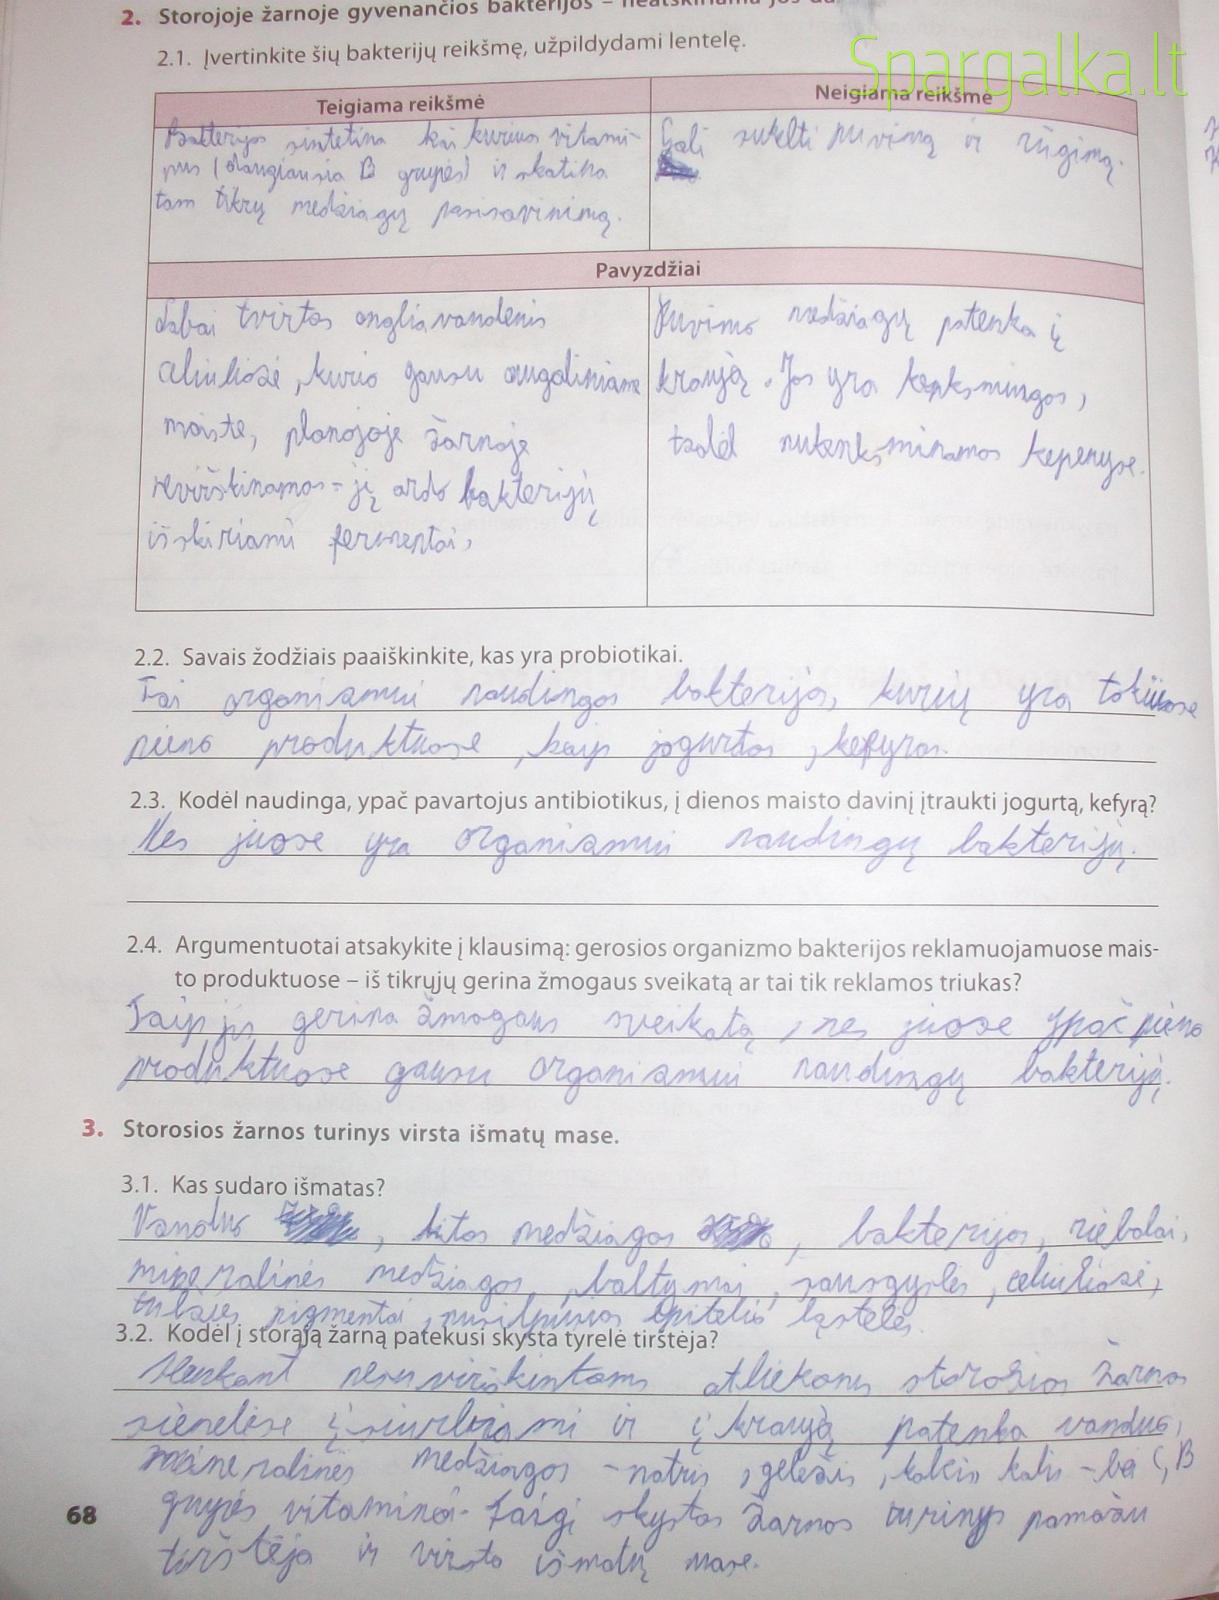 2. Storojoje žarnoje gyvenančios bakterijos –
Spargalka.lt
2.1. Įvertinkite šių bakterijų reikšmę, užpildydami lentelę.
Teigiama reikšmė
Neigiama reikšmė
Bakterijos sintetina kai kurius vitami-
nus (daugiausia B grupės) ir skatina
tam tikrų medžiagų pasisavinimą.
Gali sukelti puvimą ir rūgimą.
Pavyzdžiai
Labai tvirtas angliavandenis
celiuliozė, kurio gausu augaliniame
maiste, plonojoje žarnoje
nevirškinamas - jį ardo bakterijų
išskiriami fermentai,
Puvimo medžiagų patenka į
kraują. Jos yra kenksmingos,
todėl nukenksminamos kepenyse.
2.2. Savais žodžiais paaiškinkite, kas yra probiotikai.
Tai organizmui naudingos bakterijos, kurių yra tokiuose
pieno produktuose, kaip jogurtas, kefyras.
2.3. Kodėl naudinga, ypač pavartojus antibiotikus, į dienos maisto davinį įtraukti jogurtą, kefyrą?
Nes juose yra organizmui naudingų bakterijų.
2.4. Argumentuotai atsakykite į klausimą: gerosios organizmo bakterijos reklamuojamuose mais-
to produktuose – iš tikrųjų gerina žmogaus sveikatą ar tai tik reklamos triukas?
Taip jos gerina žmogaus sveikatą, nes juose ypač pieno
produktuose gausu organizmui naudingų bakterijų.
3. Storosios žarnos turinys virsta išmatų mase.
3.1. Kas sudaro išmatas?
Vanduo, kitos medžiagos, bakterijos, riebalai,
mineralinės medžiagos, baltymai, sausgyslės, celiuliozė,
tulžies pigmentai, epitelio ląstelės.
3.2. Kodėl į storąją žarną patekusi skysta tyrelė tirštėja?
Slenkant nesuvirškintoms atliekoms storosios žarnos
sienelėse įsiurbiami ir į kraują patenka vanduo,
mineralinės medžiagos - natris, geležis, kalis - bei C, B
grupės vitaminai. Taigi skystas žarnos turinys pamažu
tirštėja ir virsta išmatų mase.
68